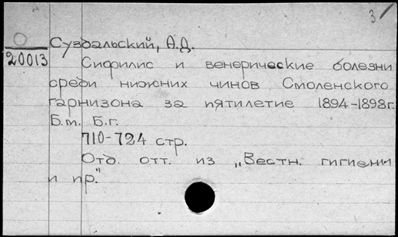 3
О Суздальский, А.Д.
20013 Сифилис и венерические болезни
среди нижних чинов Смоленского
гарнизона за пятилетие 1894-1898г.
Б.m. Б.г.
710-724 стр.
Отд. отт. из „Вестн. гигиении
и пр."